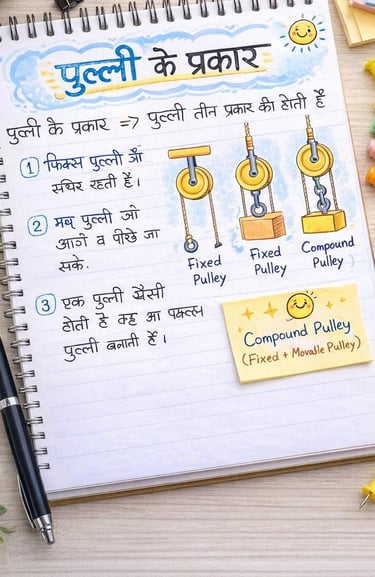 पुल्ली के प्रकार
पुल्ली के प्रकार => पुल्ली तीन प्रकार की होती हैं
1 फिक्स पुल्ली
रहती हैं।
2 जो
आगे व पीछे जा
सके.
3 एक पुल्ली
होती है
पुल्ली बनाती हैं।
Fixed Pulley
Fixed Pulley
Compound Pulley
Compound Pulley
(Fixed + Movable Pulley)